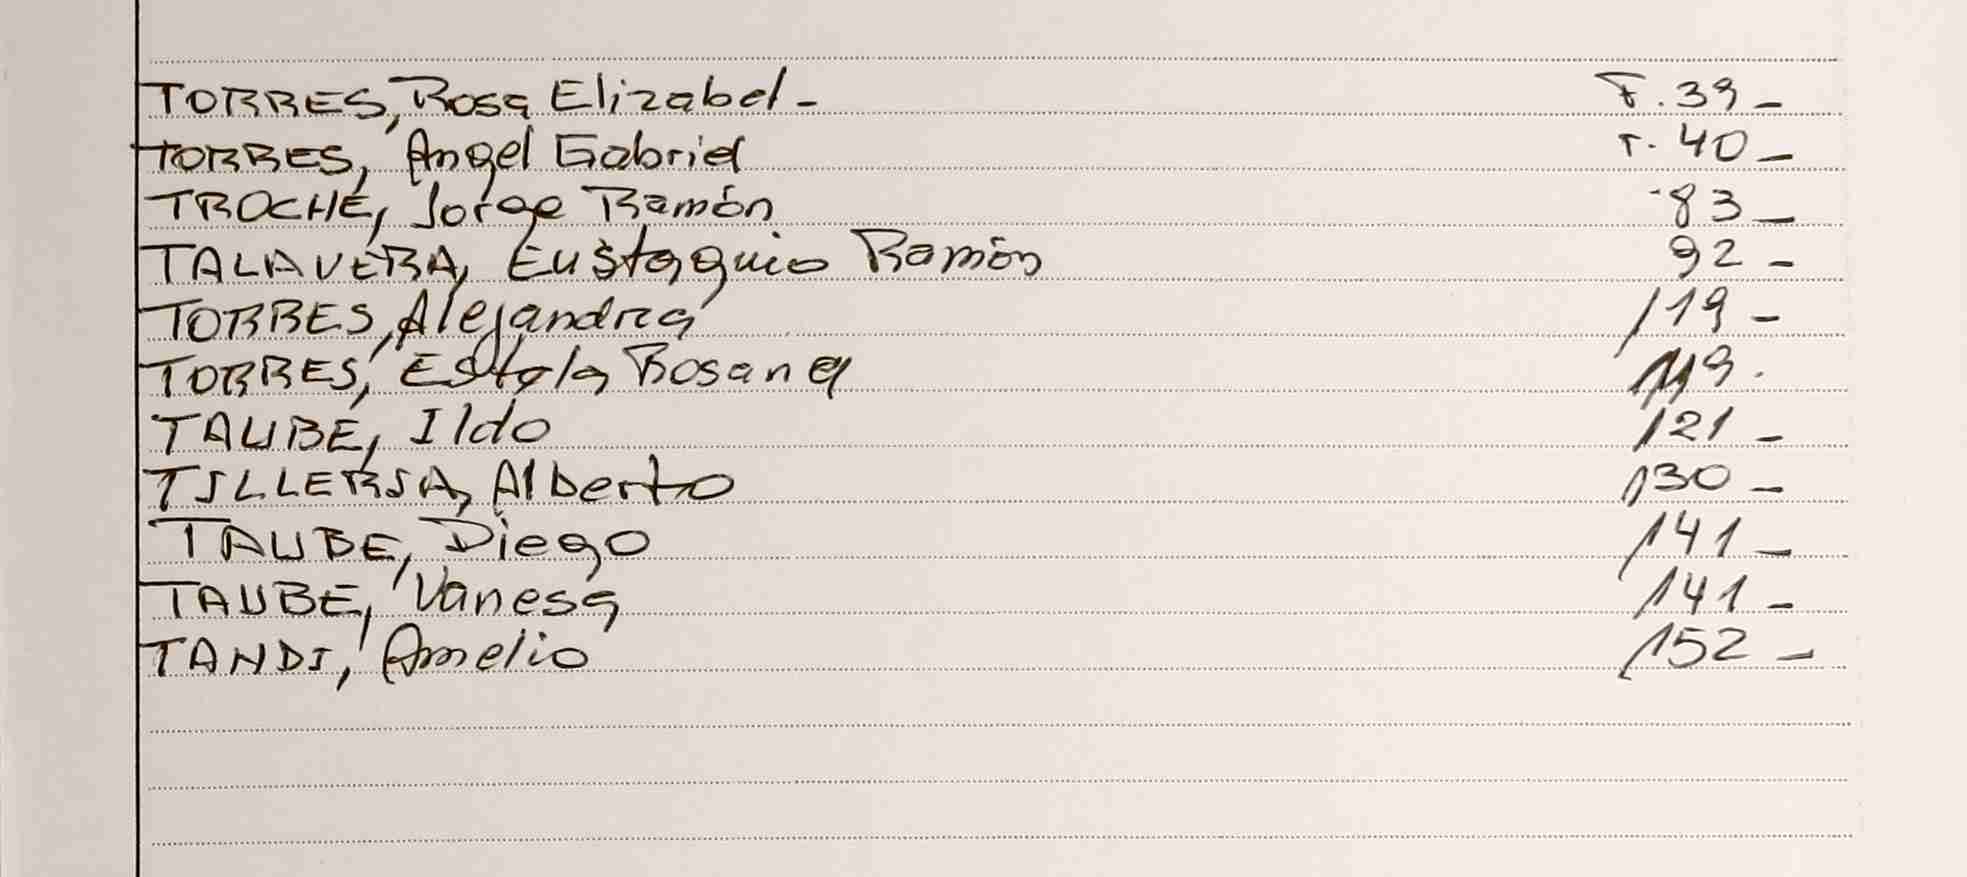 TORRES, Rosa Elizabel - F. 39 -
TORRES, Angel Gabriel F. 40 -
TROCHE, Jorge Ramón 83 -
TALAVERA, Eustaquio Ramón 92 -
TORRES, Alejandra 119 -
TORRES, Estela Rosana 119.
TAUBE, Ildo 121 -
TILLERIA, Alberto 130 -
TAUBE, Diego 141 -
TAUBE, Vanesa 141 -
TANDI, Amelio 152 -